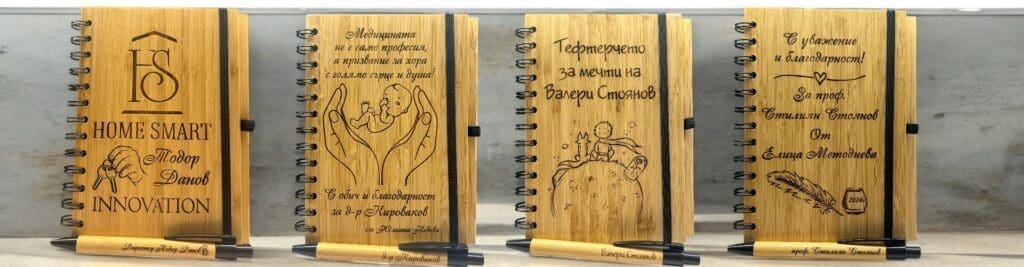 HS
HOME SMART
Тодор
Данов
INNOVATION
Директор Тодор Данов
Медицината
не е само професия,
а призвание за хора
с голямо сърце и душа!
С обич и благодарност
за д-р Кироваков
от Юлиана Недева
д-р Кироваков
Тефтерчето
за мечти на
Валери Стоянов
Валери Стоянов
С уважение
и благодарност!
За проф.
Стилиян Стоянов
От
Елица Методиева
2024г.
проф. Стилиян Стоянов